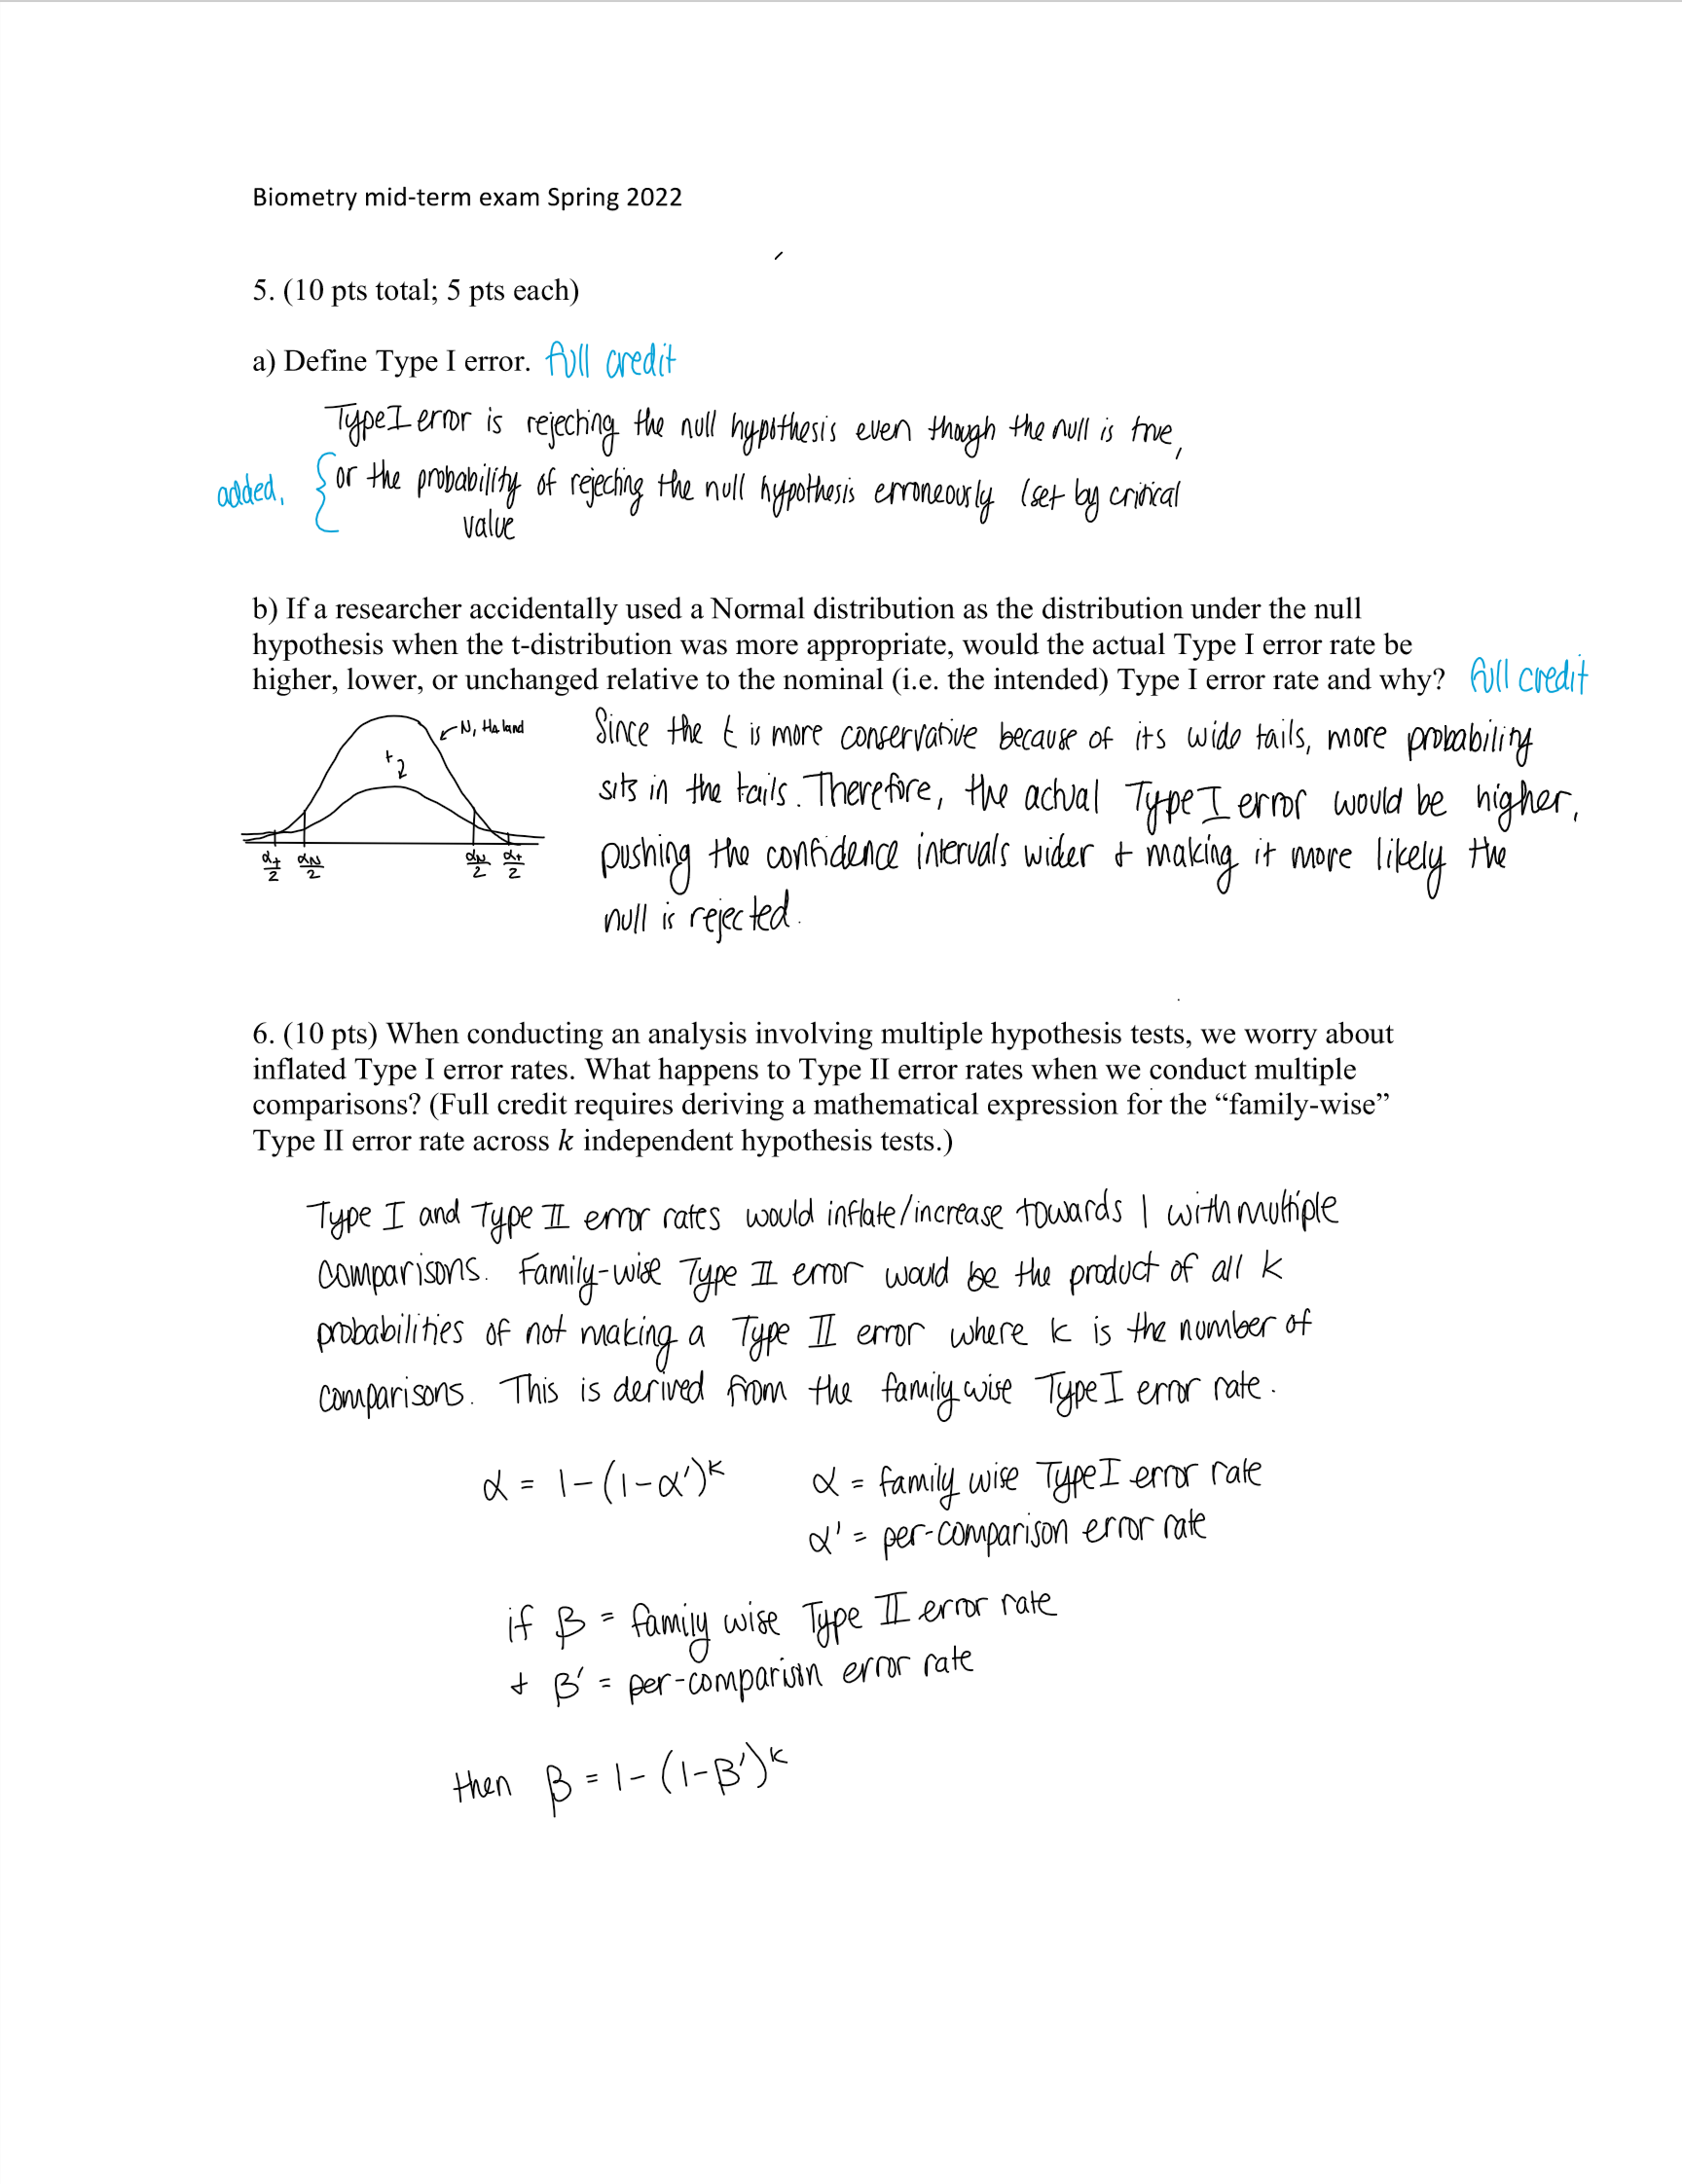 Biometry mid-term exam Spring 2022
5. (10 pts total; 5 pts each)
a) Define Type I error. full credit
Type I error is rejecting the null hypothesis even though the null is true,
added, { or the probability of rejecting the null hypothesis erroneously (set by critical
value
b) If a researcher accidentally used a Normal distribution as the distribution under the null
hypothesis when the t-distribution was more appropriate, would the actual Type I error rate be
higher, lower, or unchanged relative to the nominal (i.e. the intended) Type I error rate and why? full credit
N, HA land
t2
αt/2 αN/2 αN/2 αt/2
Since the t is more conservative because of its wide tails, more probability
sits in the tails. Therefore, the actual Type I error would be higher,
pushing the confidence intervals wider + making it more likely the
null is rejected.
6. (10 pts) When conducting an analysis involving multiple hypothesis tests, we worry about
inflated Type I error rates. What happens to Type II error rates when we conduct multiple
comparisons? (Full credit requires deriving a mathematical expression for the “family-wise”
Type II error rate across k independent hypothesis tests.)
Type I and Type II error rates would inflate/increase towards 1 with multiple
comparisons. Family-wise Type II error would be the product of all k
probabilities of not making a Type II error where k is the number of
comparisons. This is derived from the family wise Type I error rate.
α = 1-(1-α')^k α = family wise Type I error rate
α' = per-comparison error rate
if β = family wise Type II error rate
+ β' = per-comparison error rate
then β = 1-(1-β')^k